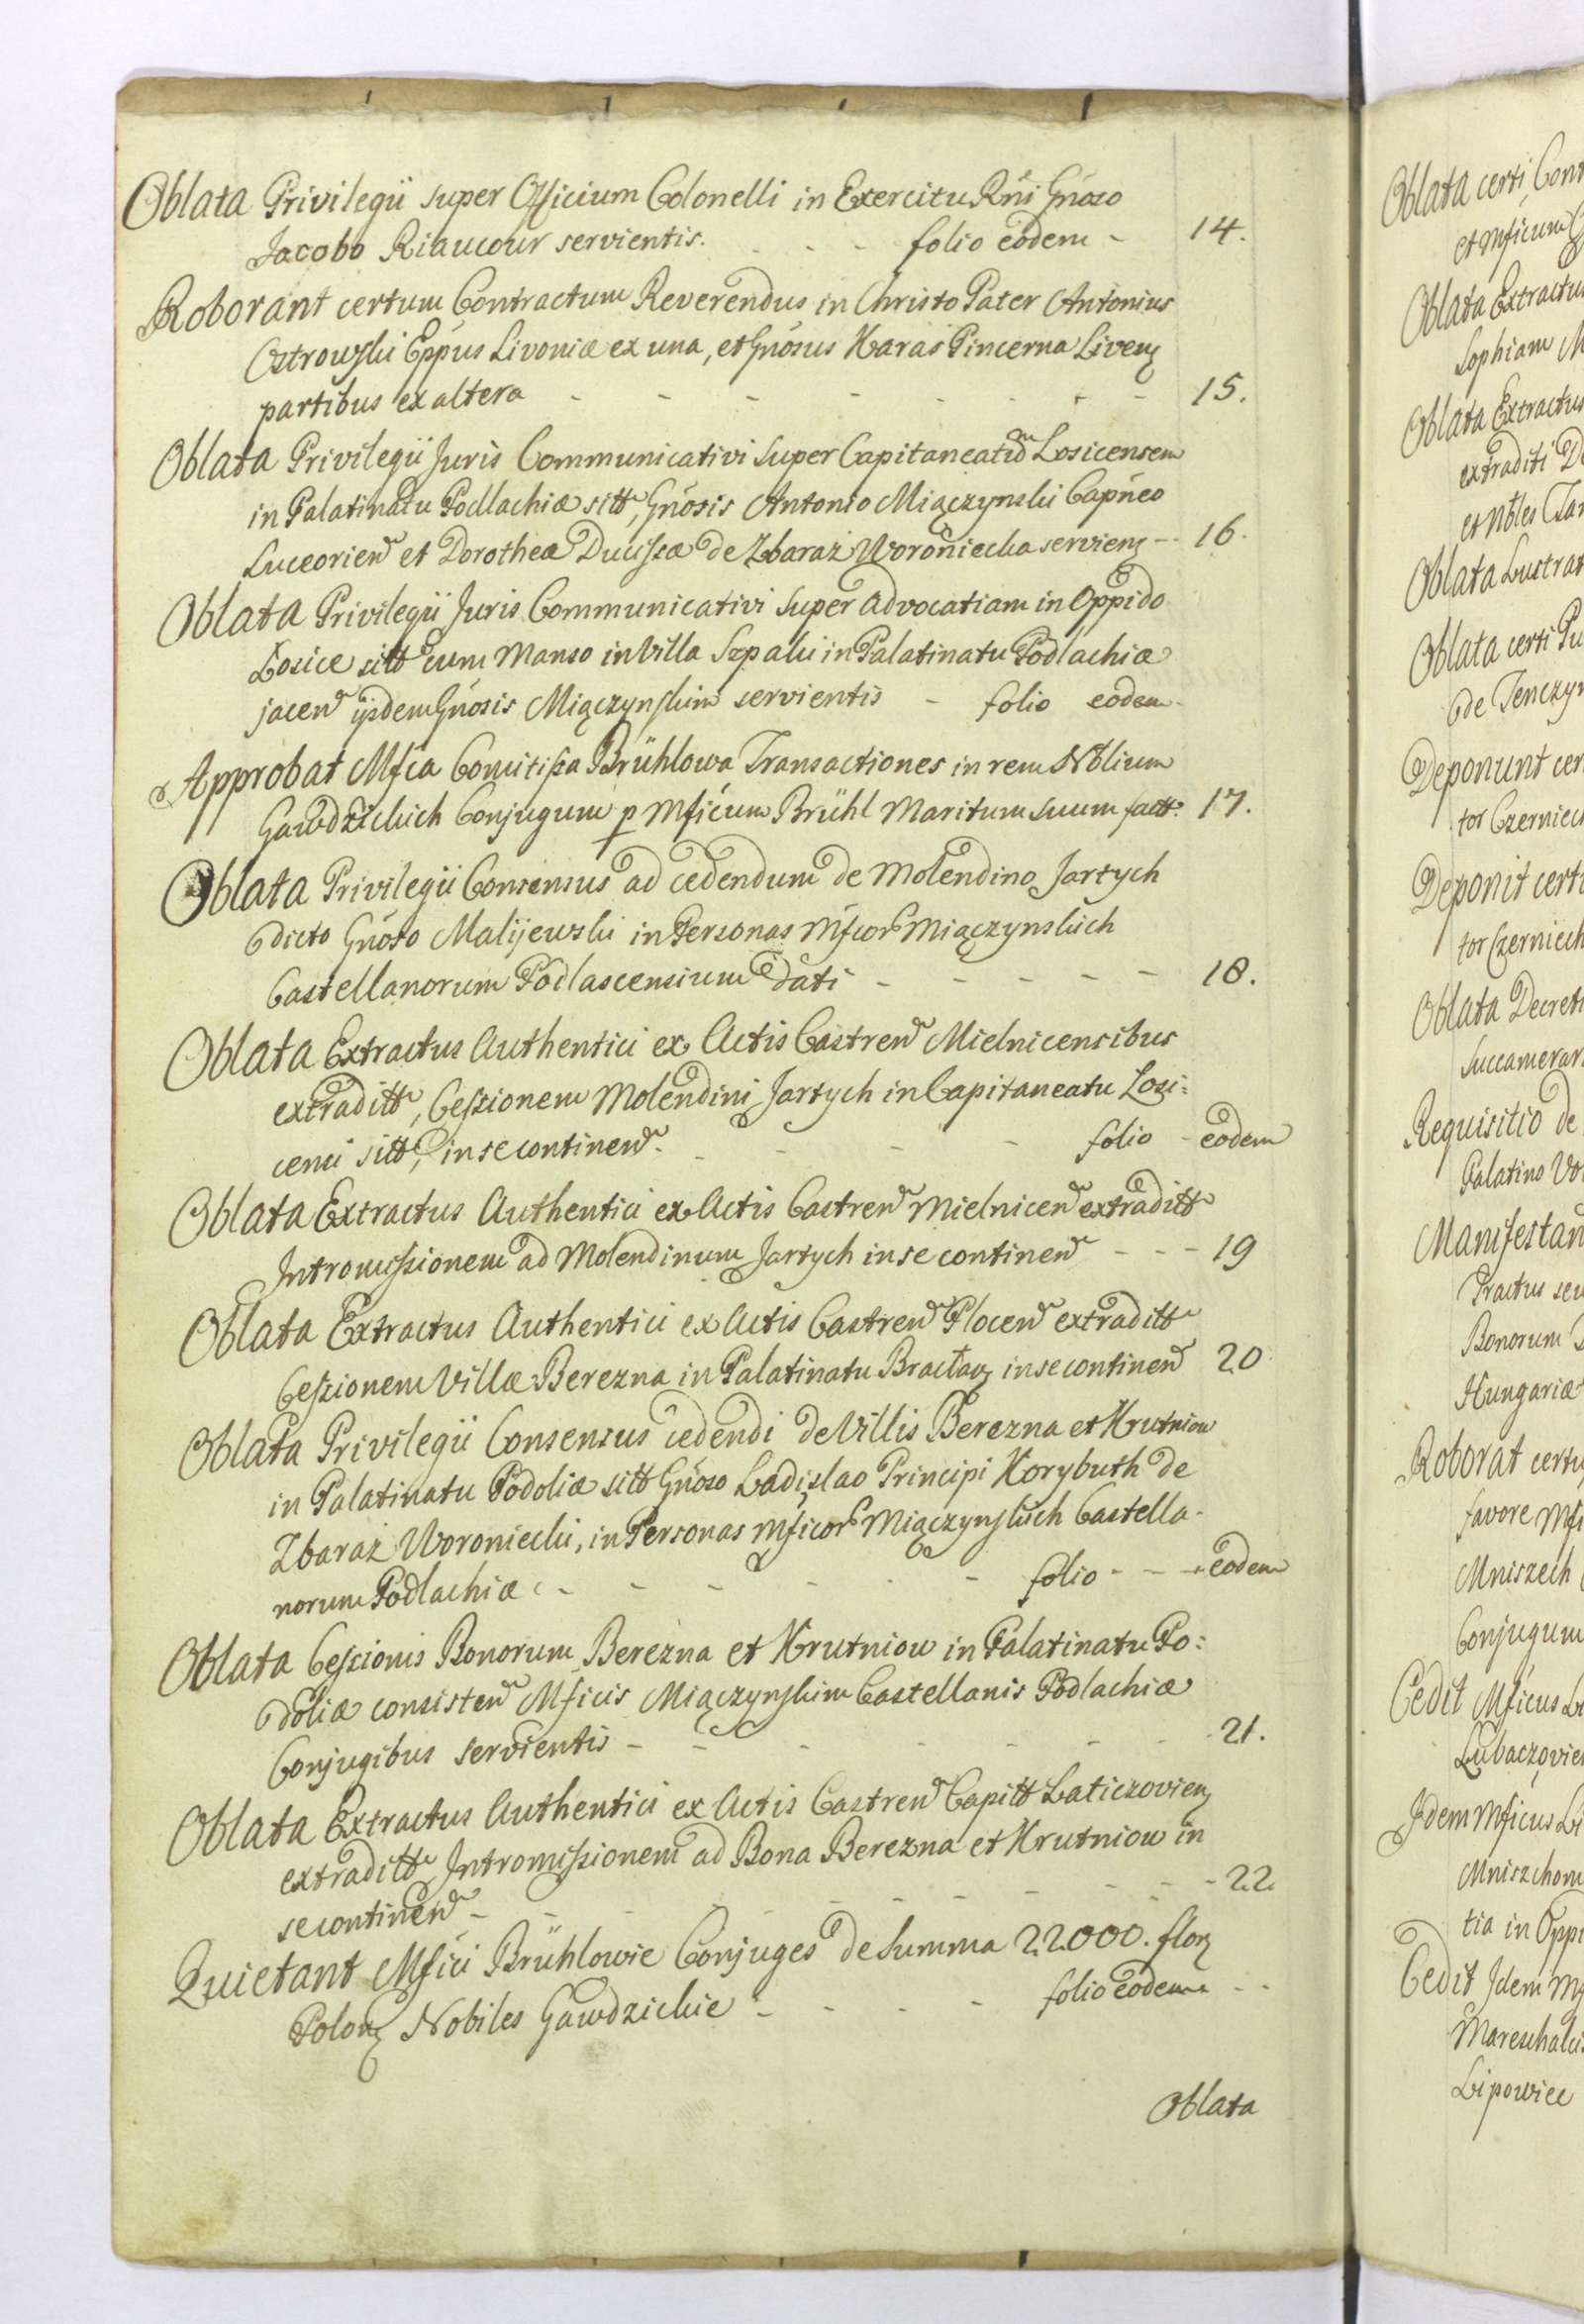 Oblata Privilegii super Officium Colonelli in Exercitu Rni Gnoso
Jacobo Riaucour servientis. - - - folio eodem - 14.
Roborant certum Contractum Reverendus in Christo Pater Antonius
Ostrowski Eppus Livoniæ ex una, et Gnosus Karaś Pincerna Liven
partibus ex altera - - - - - - - 15.
Oblata Privilegii Juris Communicativi super Capitaneatum Losicensem
in Palatinatu Podlachiæ sitt, Gnosis Antonio Miączynski Capneo
Luceorien et Dorothea Ducissa de Zbaraż Woroniecka servien - 16.
Oblata Privilegii Juris Communicativi super advocatiam in Oppido
Łosice sitt cum Manso in Villa Szpaki in Palatinatu Podlachiæ
jacen ijsdem Gnosis Miączynskim servientis - folio eodem -
Approbat Mfca Comitissa Brühlowa Transactiones in rem Nblium
Gawdzickich Conjugum p Mficum Brühl Maritum suum factt. 17.
Oblata Privilegii Consensus ad cedendum de Molendino Jartych
dicto Gnoso Malijewski in Personas Mficor Miączynskich
Castellanorum Podlascensium dati - - - - - 18.
Oblata Extractus Authentici ex Actis Castren Mielnicensibus
extraditt, Cessionem Molendini Jartych in Capitaneatu Losi:
censi sitt, in se continen. - - - folio - eodem
Oblata Extractus Authentici ex Actis Castren Mielnicen extraditt
Intromissionem ad Molendinum Jartych in se continen - - - 19
Oblata Extractus Authentici ex Actis Castren Plocen extraditt
Cessionem Villæ Berezna in Palatinatu Bracław in se continen 20
Oblata Privilegii Consensus cedendi de Villis Berezna et Krutniow
in Palatinatu Podoliæ sitt Gnoso Ladislao Principi Korybuth de
Zbaraż Woroniecki, in Personas Mficor Miączynskich Castella-
norum Podlachiæ - - - - - folio - - - eodem
Oblata Cessionis Bonorum Berezna et Krutniow in Palatinatu Po:
doliæ consisten Mficis Miączynskim Castellanis Podlachiæ
Conjugibus servientis - - - - - - - 21.
Oblata Extractus Authentici ex Actis Castren Capitt Laticzovien
extraditt Intromissionem ad Bona Berezna et Krutniow in
se continen - - - - - - - - 22
Quietant Mfici Brühlowie Conjuges de Summa 22000. flor
Polon Nobiles Gawdzickie - - - - folio eodem - -
Oblata
Oblata certi
et Mficum
Oblata Extractus
Sophiam
Oblata Extractus
extraditi
et Nbles
Oblata
Oblata certi
de Tenczyn
Deponunt
tor
Deponit
tor
Oblata Decreti
Succamerar
Requisitio de
Palatino
Manifestan
Tractus
Bonorum
Hungariæ
Roborat
favore
Mniszech
Conjugum
Cedit Mficus
Lubaczovien
Idem Mficus
Mniszchom
tia in
Cedit Idem
Mareschalci
Lipowiec